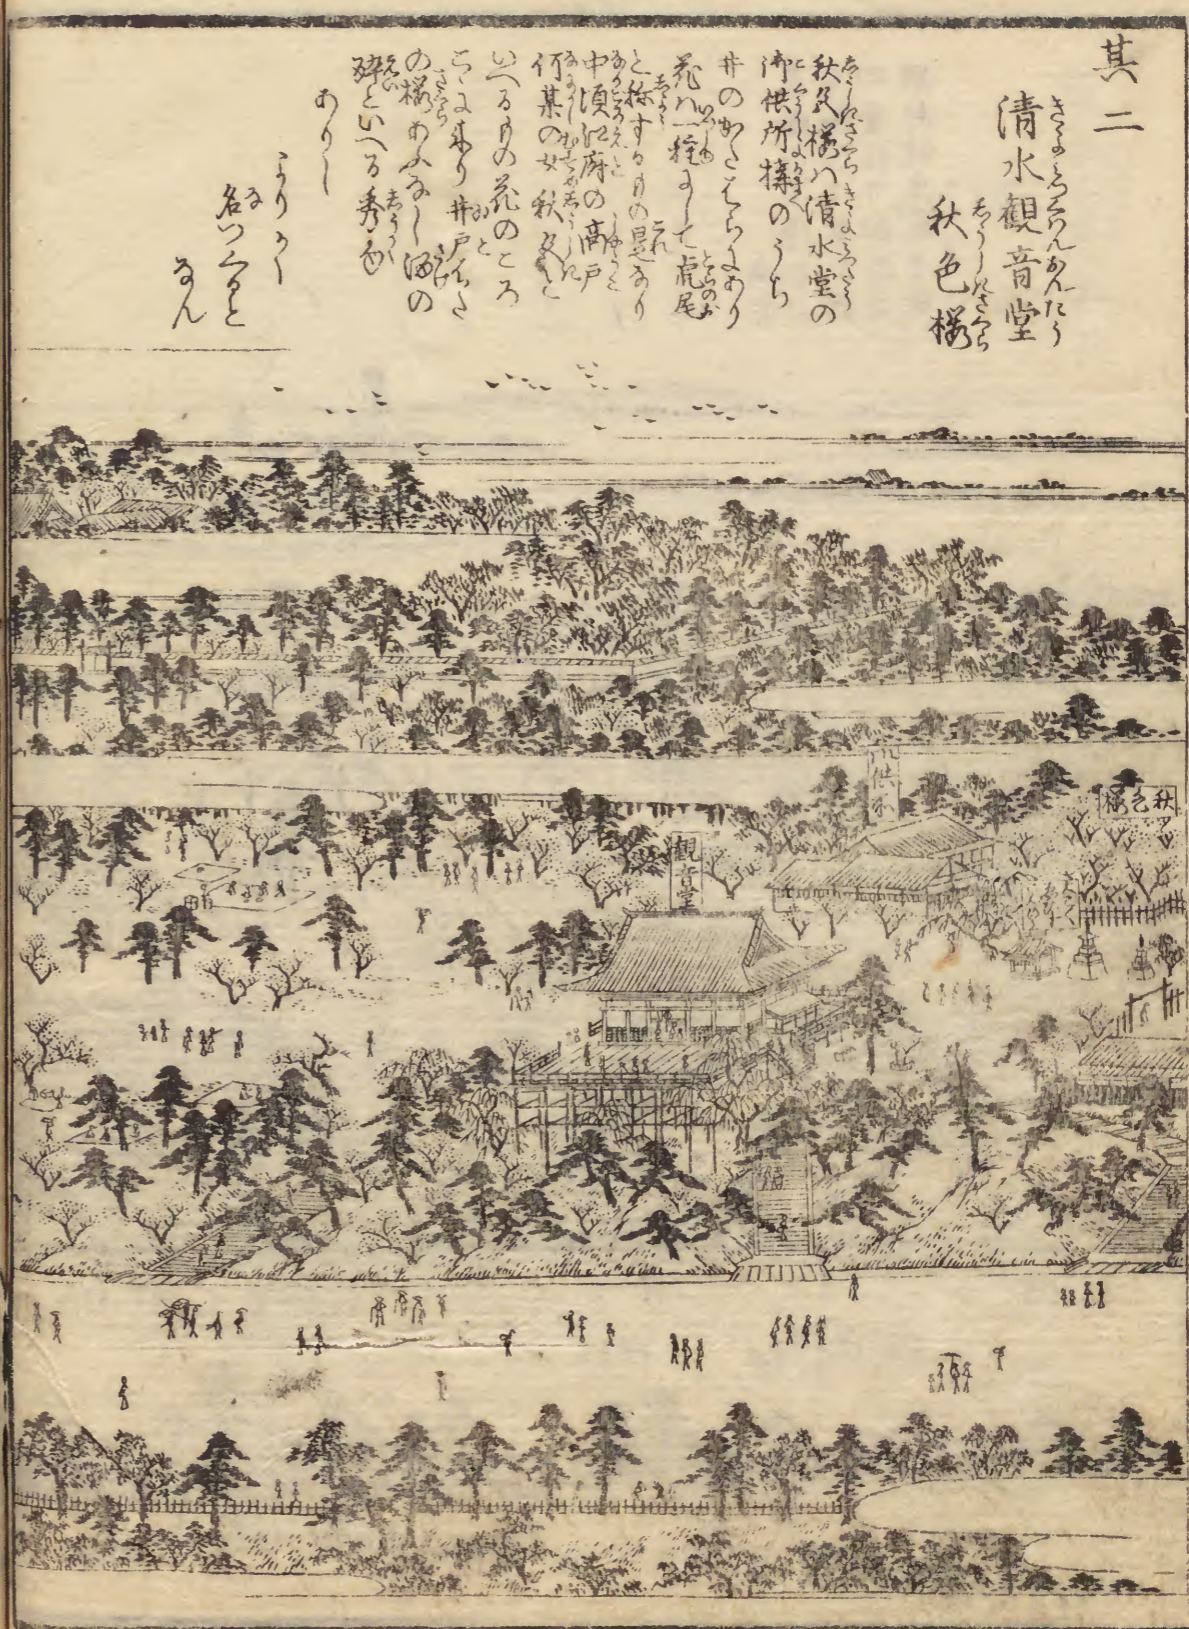 其二
清水觀音堂
秋色櫻
秋色櫻ハ清水堂の
御供所構のうち
井のかたはらにあり
花ハ一種にして虎尾
と称するもの是なり
中頃江府の商戸
何某の女秋色と
いへるもの花のころ
こゝに来り井戸はた
の櫻あふなし酒の
酔といへる秀句
ありし
よりかく
名つくると
なん
秋色櫻
御供所
觀音堂